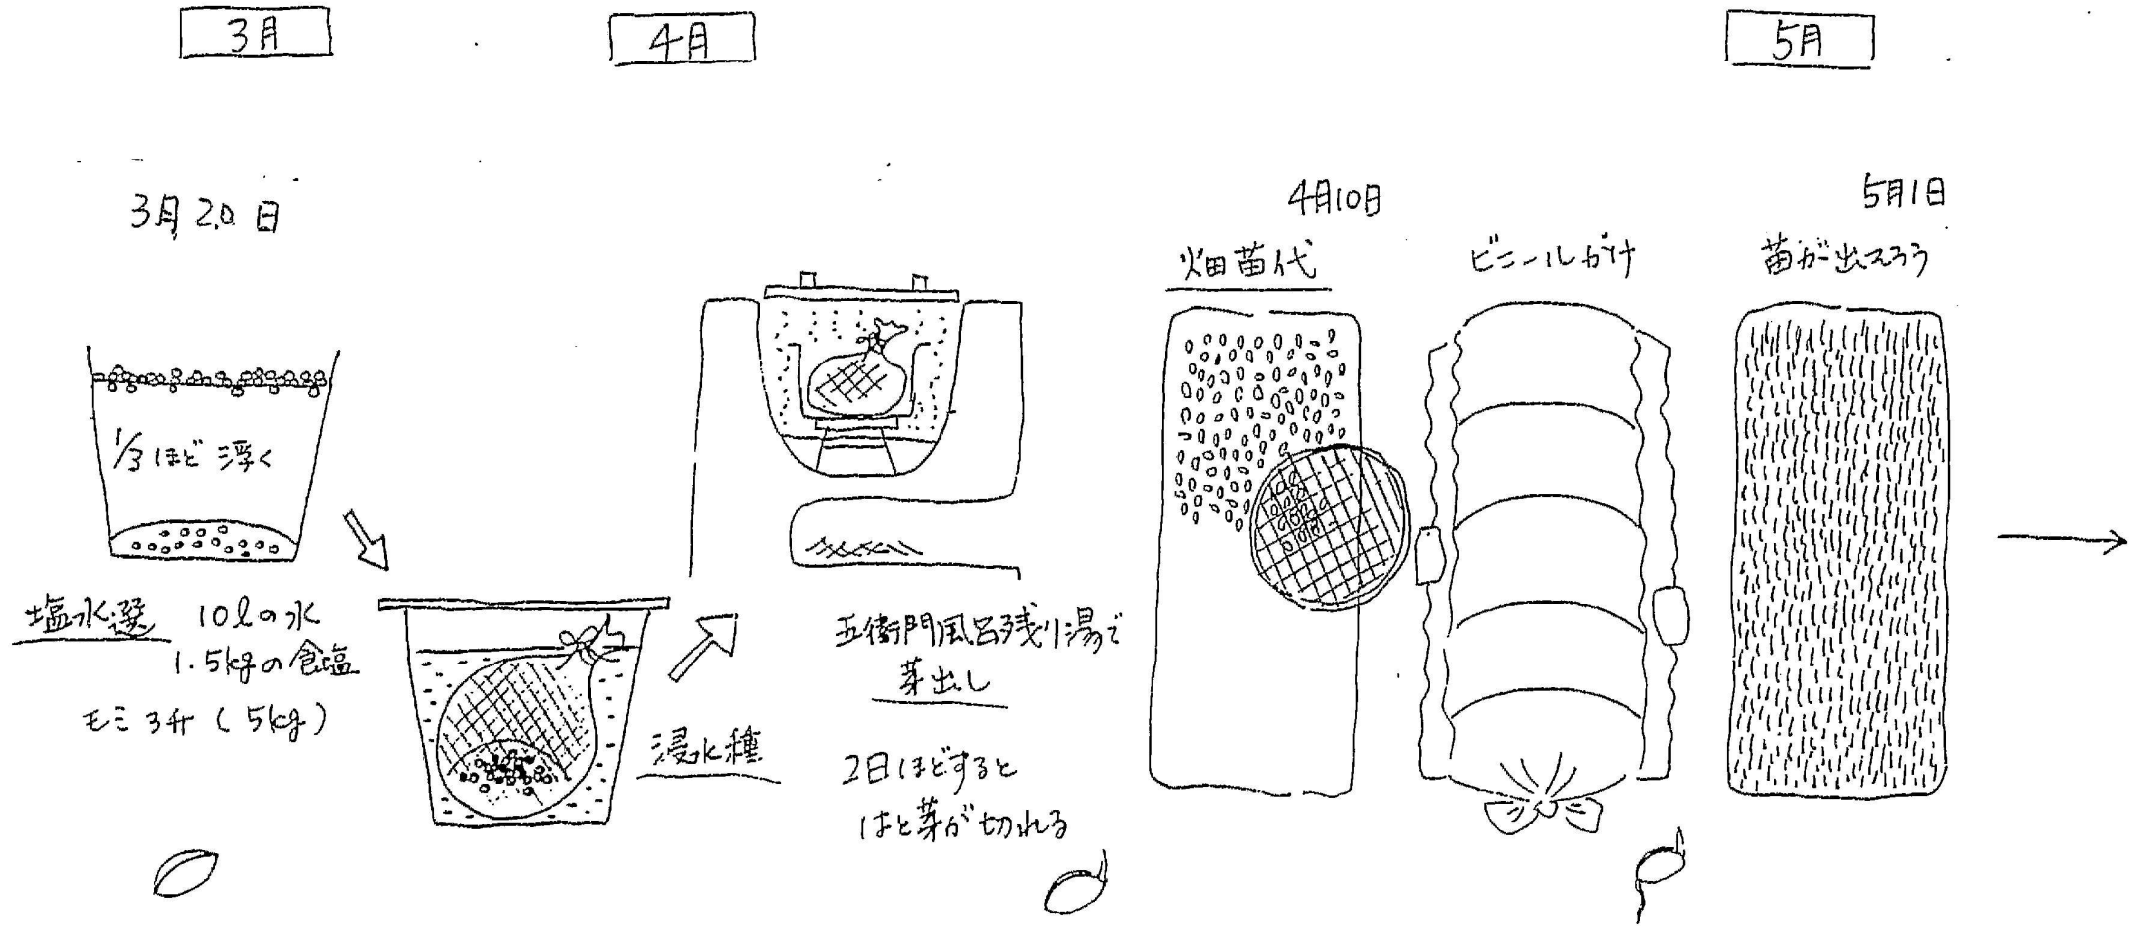 3月
4月
5月
3月20日
1/3ほど浮く
塩水選
10lの水
1.5kgの食塩
モミ3升(5kg)
浸水種
五衛門風呂残り湯で
芽出し
2日ほどすると
はと芽が切れる
4月10日
畑苗代
ビニールがけ
5月1日
苗が出そろう